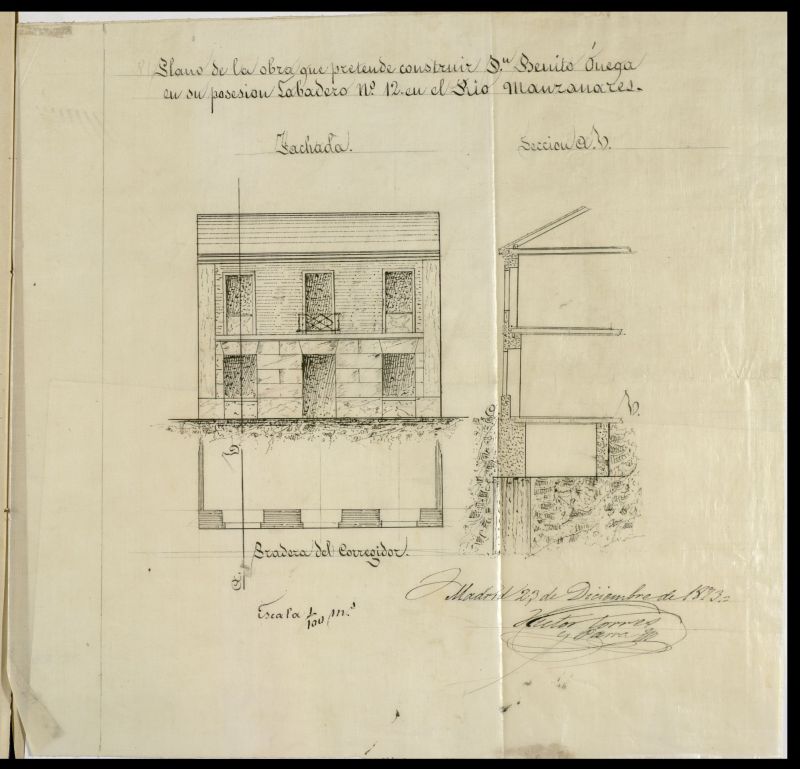 Plano de la obra que pretende construir D.ⁿ Benito Ónega
en su posesion Labadero Nº 12 en el Rio Manzanares.
Fachada.
Seccion a.b.
b.
b
Pradera del Corregidor.
a.
Escala 1/100 m.s
Madrid 23 de Diciembre de 1873=
Hector Torres
y Parra